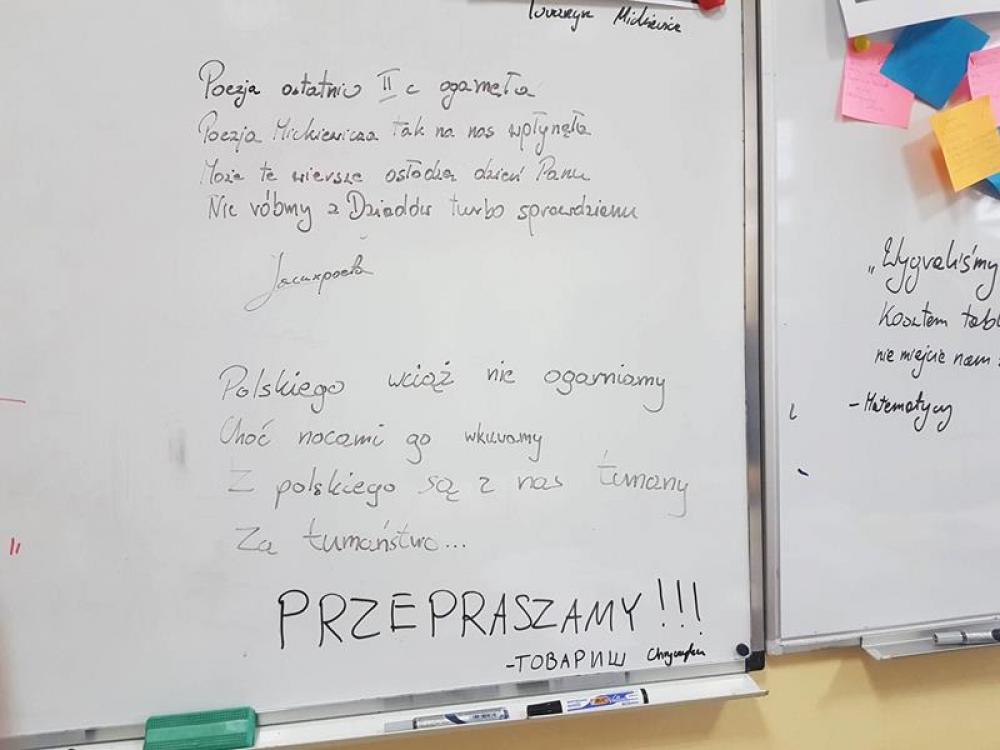 Towarzysz Mickiewicz
Poezja ostatnio II c ogarnęła
Poezja Mickiewicza tak na nas wpłynęła
Może te wiersze osłodzą dzień Panu
Nie róbmy z Dziadów turbo sprawdzianu
Polskiego wciąż nie ogarniamy
Choć nocami go wkuwamy
Z polskiego są z nas tumany
Za tumaństwo...
PRZEPRASZAMY!!!
-ТОВАРИШ
„Wygraliśmy
Kosztem tabl
nie miejcie nam
- Matematycy